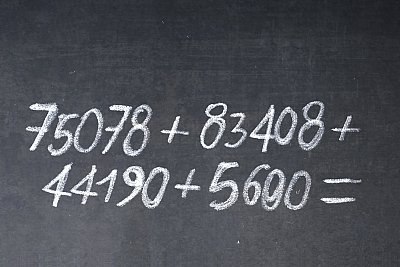 75078 + 83408 +
44190 + 5600 =